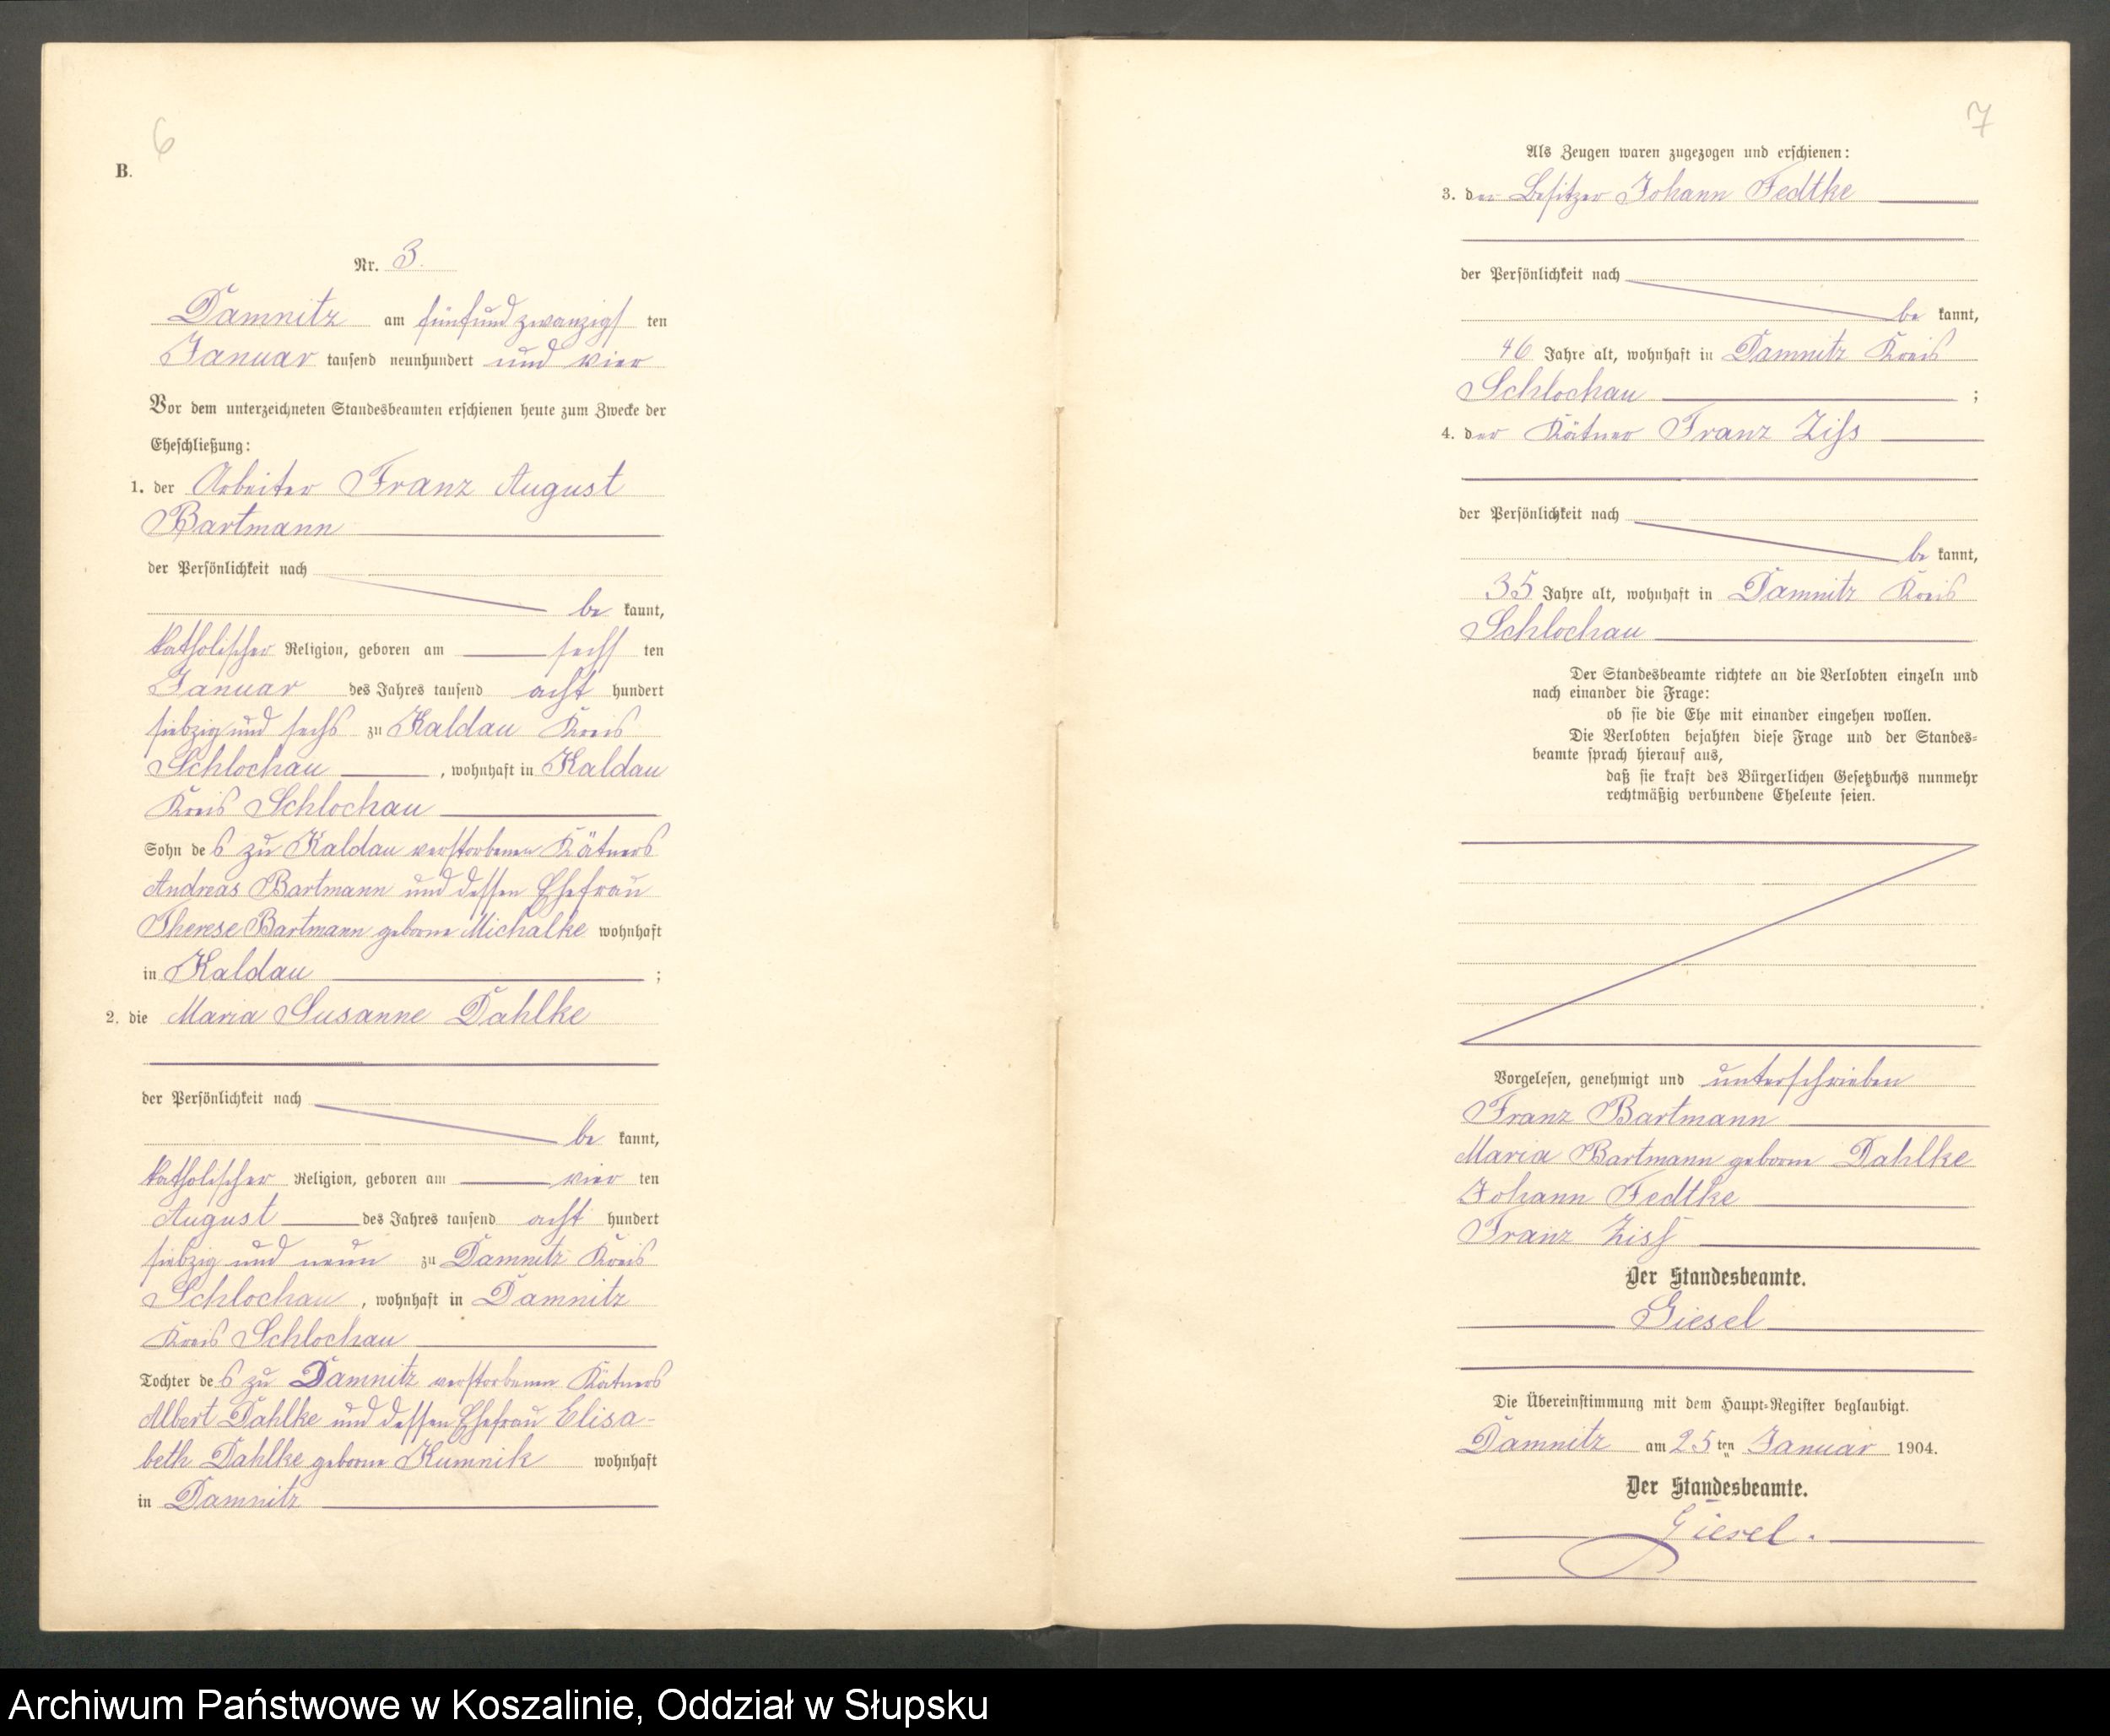 6
B.
Nr. 3.
Damnitz am fünfundzwanzigsten
Januar tausend neunhundert und vier
Vor dem unterzeichneten Standesbeamten erschienen heute zum Zwecke der
Eheschließung:
1. der Arbeiter Franz August
Bartmann
der Persönlichkeit nach
be kannt,
katholischer Religion, geboren am sechsten
Januar des Jahres tausend acht hundert
siebzig und sechs zu Kaldau Kreis
Schlochau, wohnhaft in Kaldau
Kreis Schlochau
Sohn des zu Kaldau verstorbenen Kätners
Andreas Bartmann und dessen Ehefrau
Therese Bartmann geborne Michalke wohnhaft
in Kaldau ;
2. die Maria Susanne Dahlke
der Persönlichkeit nach
be kannt,
katholischer Religion, geboren am vierten
August des Jahres tausend acht hundert
siebzig und neun zu Damnitz Kreis
Schlochau, wohnhaft in Damnitz
Kreis Schlochau
Tochter des zu Damnitz verstorbenen Kätners
Albert Dahlke und dessen Ehefrau Elisa-
beth Dahlke geborne Kumnik wohnhaft
in Damnitz
7
Als Zeugen waren zugezogen und erschienen:
3. der Besitzer Johann Fedtke
der Persönlichkeit nach
be kannt,
46 Jahre alt, wohnhaft in Damnitz Kreis
Schlochau ;
4. der Kätner Franz Ziss
der Persönlichkeit nach
be kannt,
35 Jahre alt, wohnhaft in Damnitz Kreis
Schlochau
Der Standesbeamte richtete an die Verlobten einzeln und
nach einander die Frage:
ob sie die Ehe mit einander eingehen wollen.
Die Verlobten bejahten diese Frage und der Standes-
beamte sprach hierauf aus,
daß sie kraft des Bürgerlichen Gesetzbuchs nunmehr
rechtmäßig verbundene Eheleute seien.
Vorgelesen, genehmigt und unterschrieben
Franz Bartmann
Maria Bartmann geborne Dahlke
Johann Fedtke
Franz Ziss
Der Standesbeamte.
Giesel
Die Übereinstimmung mit dem Haupt-Register beglaubigt.
Damnitz am 25ten Januar 1904.
Der Standesbeamte.
Giesel.
Archiwum Państwowe w Koszalinie, Oddział w Słupsku